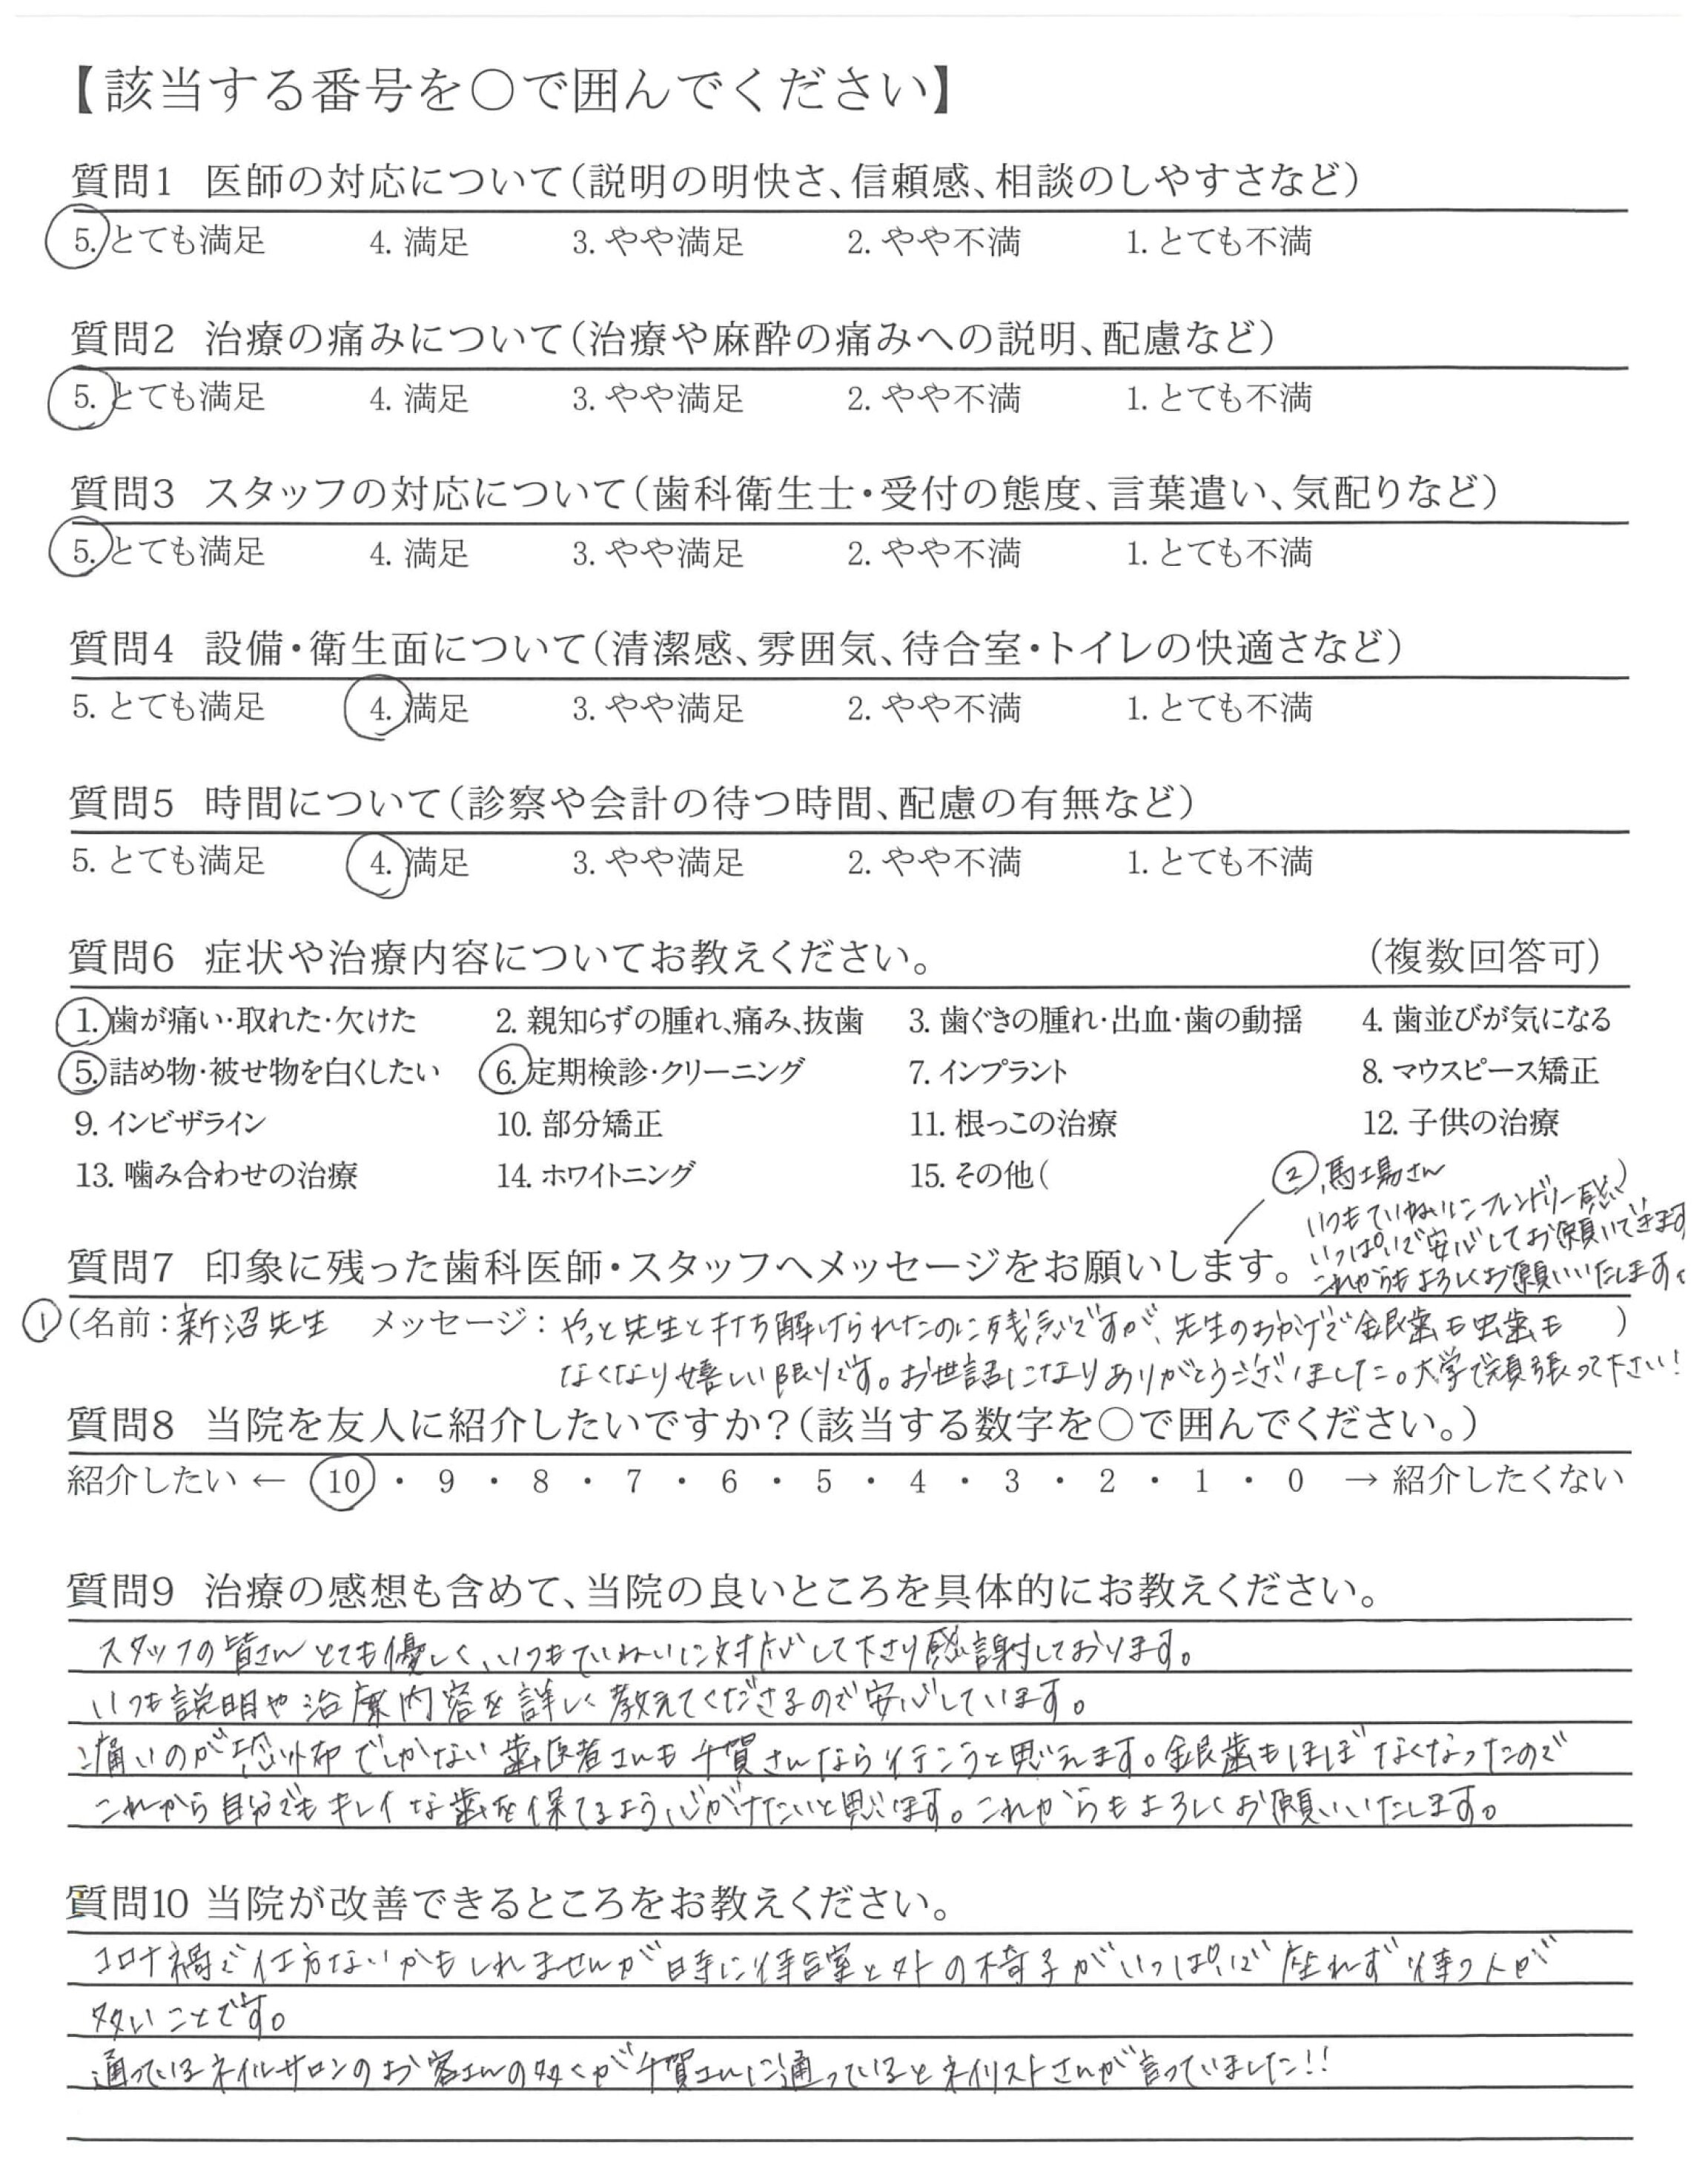 【該当する番号を○で囲んでください】
質問1 医師の対応について(説明の明快さ、信頼感、相談のしやすさなど)
5. とても満足 4. 満足 3. やや満足 2. やや不満 1. とても不満
質問2 治療の痛みについて(治療や麻酔の痛みへの説明、配慮など)
5. とても満足 4. 満足 3. やや満足 2. やや不満 1. とても不満
質問3 スタッフの対応について(歯科衛生士・受付の態度、言葉遣い、気配りなど)
5. とても満足 4. 満足 3. やや満足 2. やや不満 1. とても不満
質問4 設備・衛生面について(清潔感、雰囲気、待合室・トイレの快適さなど)
5. とても満足 4. 満足 3. やや満足 2. やや不満 1. とても不満
質問5 時間について(診察や会計の待つ時間、配慮の有無など)
5. とても満足 4. 満足 3. やや満足 2. やや不満 1. とても不満
質問6 症状や治療内容についてお教えください。 (複数回答可)
1. 歯が痛い・取れた・欠けた 2. 親知らずの腫れ、痛み、抜歯 3. 歯ぐきの腫れ・出血・歯の動揺 4. 歯並びが気になる
5. 詰め物・被せ物を白くしたい 6. 定期検診・クリーニング 7. インプラント 8. マウスピース矯正
9. インビザライン 10. 部分矯正 11. 根っこの治療 12. 子供の治療
13. 噛み合わせの治療 14. ホワイトニング 15. その他( )
② 馬場さん
いつもていねいにフレンドリー感
いっぱいで安心してお願いできます
これからもよろしくお願いいたします。
質問7 印象に残った歯科医師・スタッフへメッセージをお願いします。
① (名前：新沼先生 メッセージ：やっと先生と打ち解けられたのに残念ですが、先生のおかげで銀歯も虫歯も )
なくなり嬉しい限りです。お世話になりありがとうございました。大学で頑張って下さい!
質問8 当院を友人に紹介したいですか?(該当する数字を○で囲んでください。)
紹介したい ← 10 ・ 9 ・ 8 ・ 7 ・ 6 ・ 5 ・ 4 ・ 3 ・ 2 ・ 1 ・ 0 → 紹介したくない
質問9 治療の感想も含めて、当院の良いところを具体的にお教えください。
スタッフの皆さんとても優しく、いつもていねいに対応して下さり感謝しております。
いつも説明や治療内容を詳しく教えてくださるので安心しています。
痛いのが恐怖でしかない歯医者さんも千賀さんなら行こうと思えます。銀歯もほぼなくなったので
これから自分でもキレイな歯を保てるよう心がけたいと思います。これからもよろしくお願いいたします。
質問10 当院が改善できるところをお教えください。
コロナ禍で仕方ないかもしれませんが時に待合室と外の椅子がいっぱいで座れず待つ人が
多いことです。
通っているネイルサロンのお客さんの多くが千賀さんに通っているとネイリストさんが言っていました!!